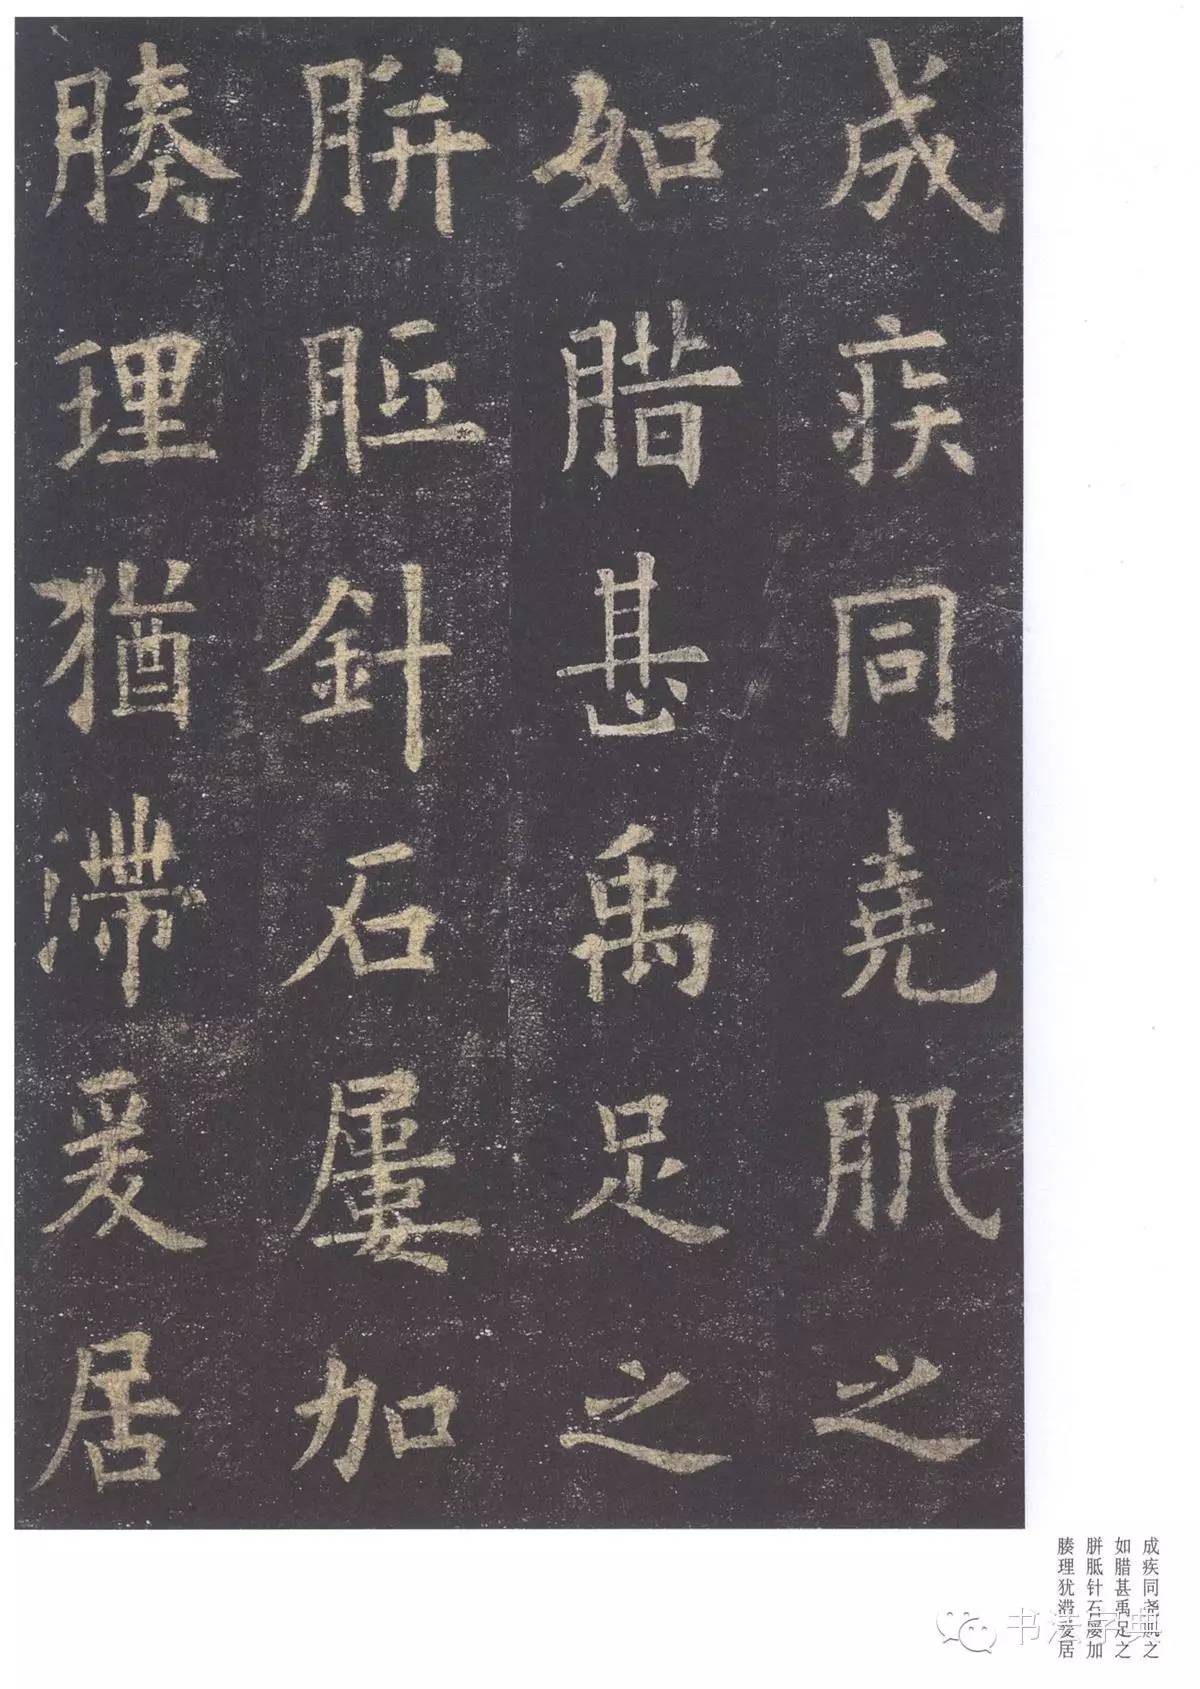 成疾同堯肌之
如腊甚禹足之
胼胝針石屢加
腠理猶滯爰居
成疾同尧肌之
如腊甚禹足之
胼胝针石屡加
腠理犹滞爰居
书法字典